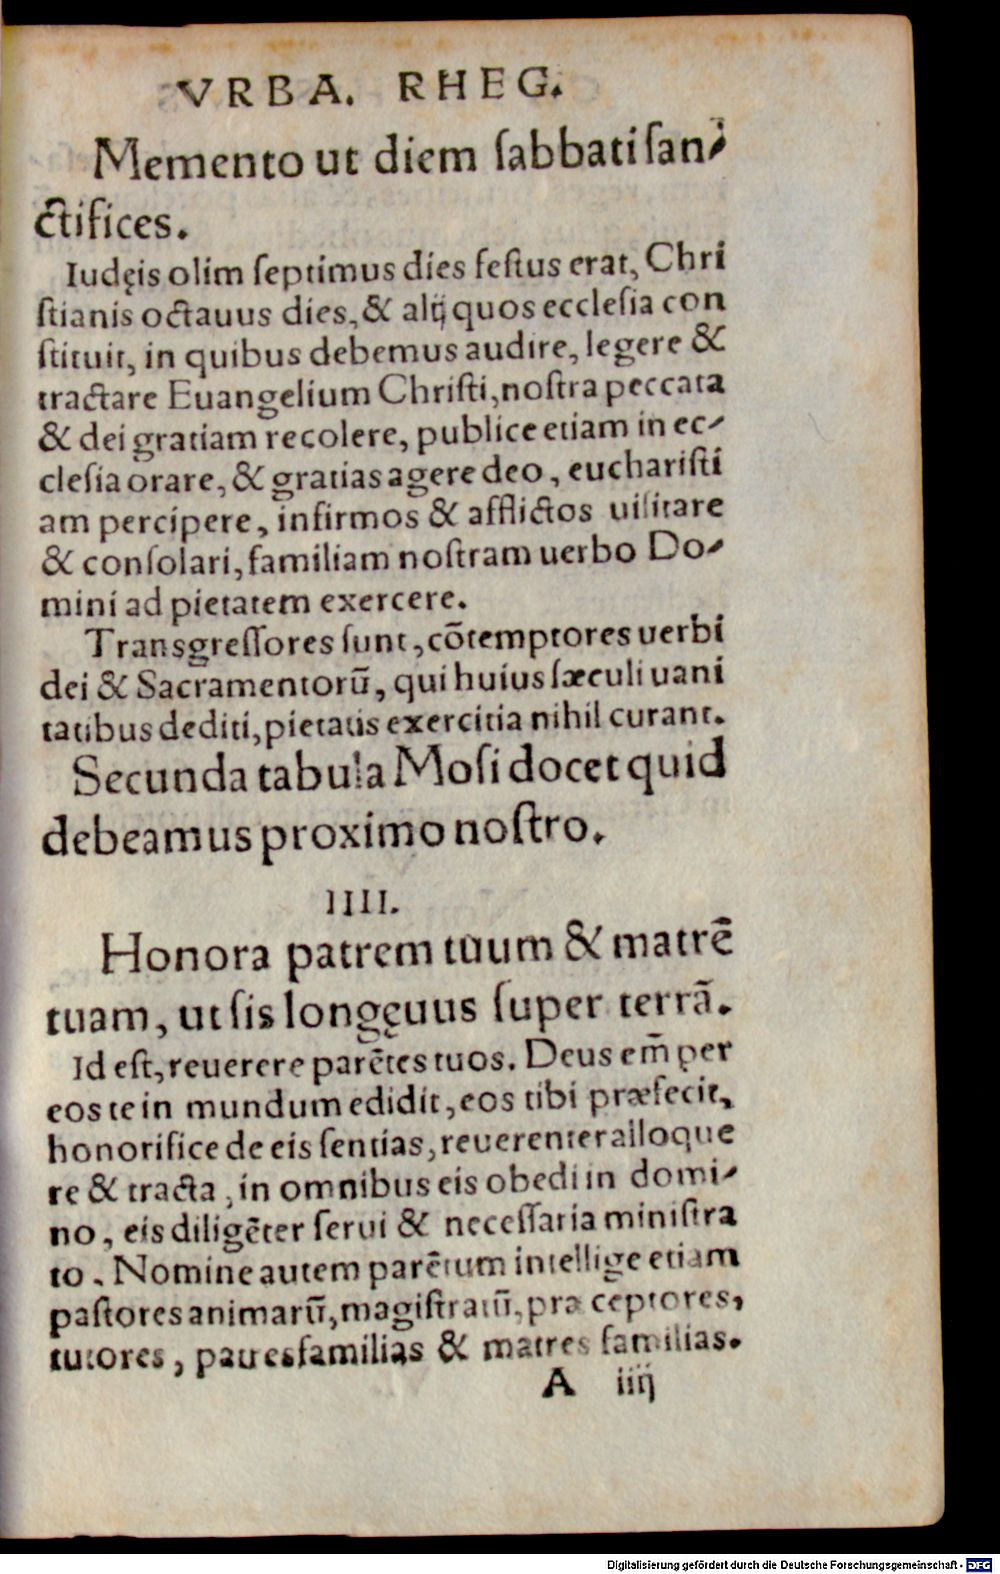 VRBA. RHEG.
Memento ut diem ſabbati ſan-
ctifices.
Iudęis olim ſeptimus dies feſtus erat, Chri
ſtianis octauus dies, & alij quos eccleſia con
ſtituit, in quibus debemus audire, legere &
tractare Euangelium Chriſti, noſtra peccata
& dei gratiam recolere, publice etiam in ec-
cleſia orare, & gratias agere deo, euchariſti
am percipere, infirmos & afflictos uiſitare
& conſolari, familiam noſtram uerbo Do-
mini ad pietatem exercere.
Transgreſſores ſunt, cõtemptores uerbi
dei & Sacramentorũ, qui huius ſæculi uani
tatibus dediti, pietatis exercitia nihil curant.
Secunda tabula Moſi docet quid
debeamus proximo noſtro.
IIII.
Honora patrem tuum & matrẽ
tuam, ut ſis longęuus ſuper terrã.
Id eſt, reuerere parẽtes tuos. Deus em̃ per
eos te in mundum edidit, eos tibi præfecit,
honorifice de eis ſentias, reuerenter alloque
re & tracta, in omnibus eis obedi in domi-
no, eis diligẽter ſerui & neceſſaria miniſtra
to. Nomine autem parẽtum intellige etiam
paſtores animarũ, magiſtratũ, præceptores,
tutores, patresfamilias & matres familias.
A iiij
Digitalisierung gefördert durch die Deutsche Forschungsgemeinschaft - DFG